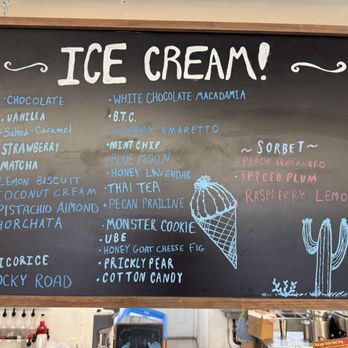 ICE CREAM!
CHOCOLATE
VANILLA
Salted Caramel
STRAWBERRY
MATCHA
LEMON BISCUIT
COCONUT CREAM
PISTACHIO ALMOND
HORCHATA
ICORICE
OCKY ROAD
WHITE CHOCOLATE MACADAMIA
B.T.C.
CHERRY AMARETTO
MINT CHIP
BLUE MOON
HONEY LAVENDAR
THAI TEA
PECAN PRALINE
MONSTER COOKIE
UBE
HONEY GOAT CHEESE FIG
PRICKLY PEAR
COTTON CANDY
~ SORBET ~
PEACH HABANERO
SPICED PLUM
RASPBERRY LEMO